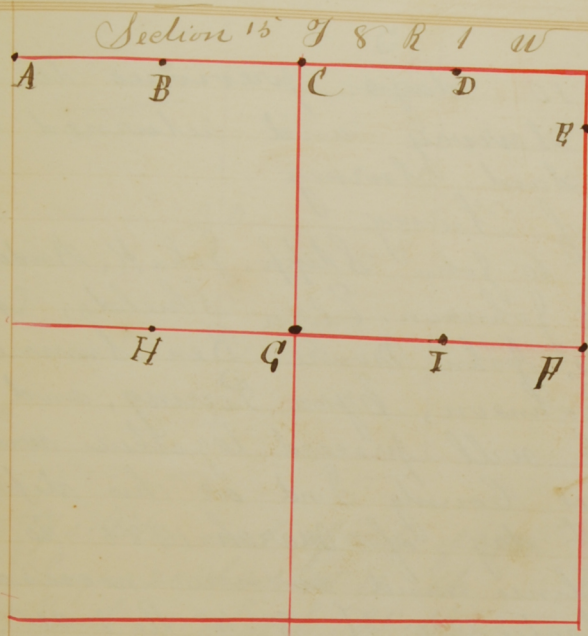 Section 15 T 8 R 1 W
A B C D
E
H G I F